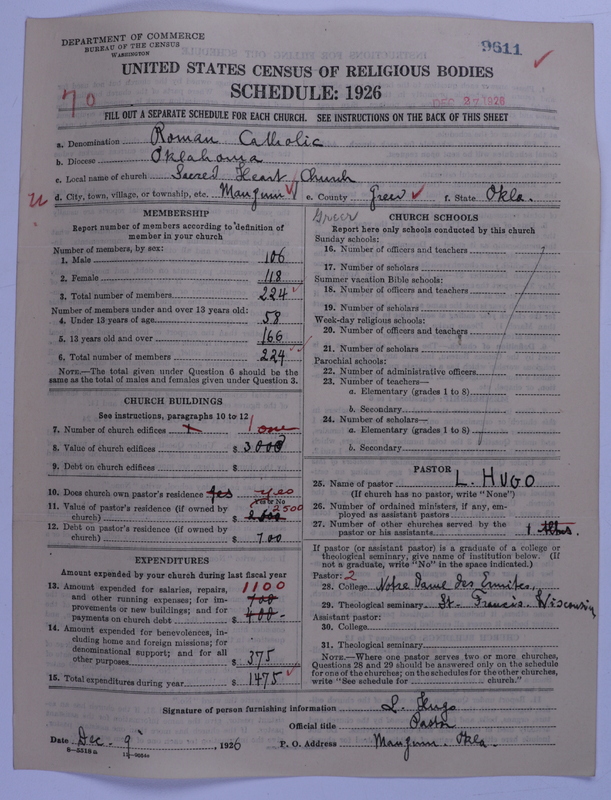 DEPARTMENT OF COMMERCE
BUREAU OF THE CENSUS
WASHINGTON
9611
UNITED STATES CENSUS OF RELIGIOUS BODIES
SCHEDULE: 1926
70
DEC 27 1926
FILL OUT A SEPARATE SCHEDULE FOR EACH CHURCH. SEE INSTRUCTIONS ON THE BACK OF THIS SHEET
a. Denomination Roman Catholic
b. Diocese Oklahoma
c. Local name of church Sacred Heart Church
d. City, town, village, or township, etc. Mangum e. County Greer f. State Okla.
MEMBERSHIP
Report number of members according to definition of
member in your church
Number of members, by sex:
1. Male 106
2. Female 118
3. Total number of members 224
Number of members under and over 13 years old:
4. Under 13 years of age 58
5. 13 years old and over 166
6. Total number of members 224
NOTE.—The total given under Question 6 should be
same as the total of males and females given under Question 3.
CHURCH BUILDINGS
See instructions, paragraphs 10 to 12
7. Number of church edifices 1 one
8. Value of church edifices $ 3000
9. Debt on church edifices $
10. Does church own pastor's residence yes yes
Yes or No
11. Value of pastor's residence (if owned by
church) $ 2500 2500
12. Debt on pastor's residence (if owned by
church) $ 700
EXPENDITURES
Amount expended by your church during last fiscal year
13. Amount expended for salaries, repairs,
and other running expenses; for im-
provements or new buildings; and for
payments on church debt $ 1100 700 400
14. Amount expended for benevolences, in-
cluding home and foreign missions; for
denominational support; and for all
other purposes $ 375
15. Total expenditures during year $ 1475
Greer
CHURCH SCHOOLS
Report here only schools conducted by this church
Sunday schools:
16. Number of officers and teachers
17. Number of scholars
Summer vacation Bible schools:
18. Number of officers and teachers
19. Number of scholars
Week-day religious schools:
20. Number of officers and teachers
21. Number of scholars
Parochial schools:
22. Number of administrative officers
23. Number of teachers—
a. Elementary (grades 1 to 8)
b. Secondary
24. Number of scholars—
a. Elementary (grades 1 to 8)
b. Secondary
PASTOR
25. Name of pastor L. HUGO
(If church has no pastor, write "None")
26. Number of ordained ministers, if any, em-
ployed as assistant pastors
27. Number of other churches served by the
pastor or his assistants 1
If pastor (or assistant pastor) is a graduate of a college or
theological seminary, give name of institution below. (If
not a graduate, write "No" in the space indicated.)
Pastor: 2
28. College Notre Dame des Ermites,
29. Theological seminary St. Francis, Wisconsin
Assistant pastor:
30. College
31. Theological seminary
NOTE.—Where one pastor serves two or more churches,
Questions 28 and 29 should be answered only on the schedule
for one of the churches; on the schedules for the other churches,
write "See schedule for church."
Signature of person furnishing information L. Hugo
Official title Pastor
Date Dec. 9, 1926 P. O. Address Mangum, Okla.
8—5318 a